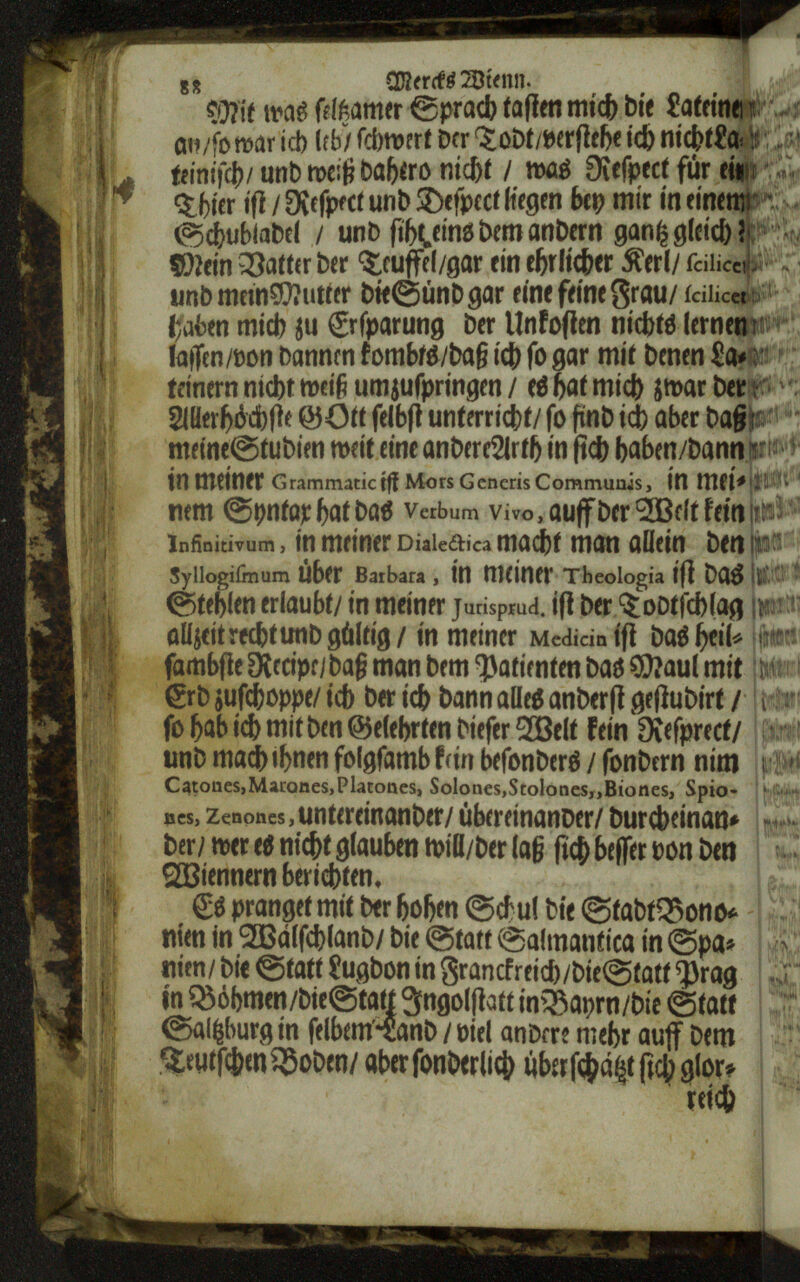 88 Mercks Wienn.
Mit was selzamer Sprach tasten mich die Lateiner
an/so war ich leb/ schwert der Todt/verstehe ich nicht La-
teinisch/ und weiß dahero nicht / was Respect für ein
Thier ist / Respect und Despect liegen bey mir in einem
Schubladel / und siht eins dem andern gantz gleich?
Mein Vatter der Teuffel/gar ein ehrlicher Kerl/ scilicet
und mein Mutter die Sünd gar eine feine Frau/ scilicet
haben mich zu Ersparung der Unkosten nichts lernen
lassen/von dannen kombts/daß ich so gar mit denen La-
teinern nicht weiß umzuspringen / es hat mich zwar der
Allerhöchste GOtt selbst unterricht/ so sind ich aber daß
meine Studien weit eine andere Arth in sich haben/dann
in meiner Grammatic ist Mors Generis Communis, in mei-
nem Syntax hat das Verbum Vivo, auff der Welt kein
Infinitivum, in meiner Dialectica macht man allein den
Syllogismum über Barbara, in meiner Theologia ist das
Stehlen erlaubt/ in meiner Jurisprud. ist der Todtschlag
allzeit recht und gültig / in meiner Medicin ist das heil-
sambste Recipe/daß man dem Patienten das Maul mit
Erd zuschoppe/ ich der ich dann alles anderst gestudirt /
so hab ich mit den Gelehrten dieser Welt kein Resprect/
und mach ihnen folgsamb kein besonders / sondern nim
Catones,Marones,Platones, Solones,Stolones,,Biones, Spio-
nes, Zenones, untereinander/ übereinander/ durcheinan-
der/ wer es nicht glauben will/der laß sich besser von den
Wiennern berichten.
Es pranget mit der hohen Schul die Stadt Bono-
nien in Wälschland/ die Statt Salmantica in Spa-
nien/ die Statt Lugdon in Franckreich/die Statt Prag
in Böhmen/die Statt Ingolstatt in Bayrn/die Statt
Saltzburg in selbem Land / viel andere mehr auff dem
Teutschen Boden/ aber sonderlich überschätzt sich glor-
reich